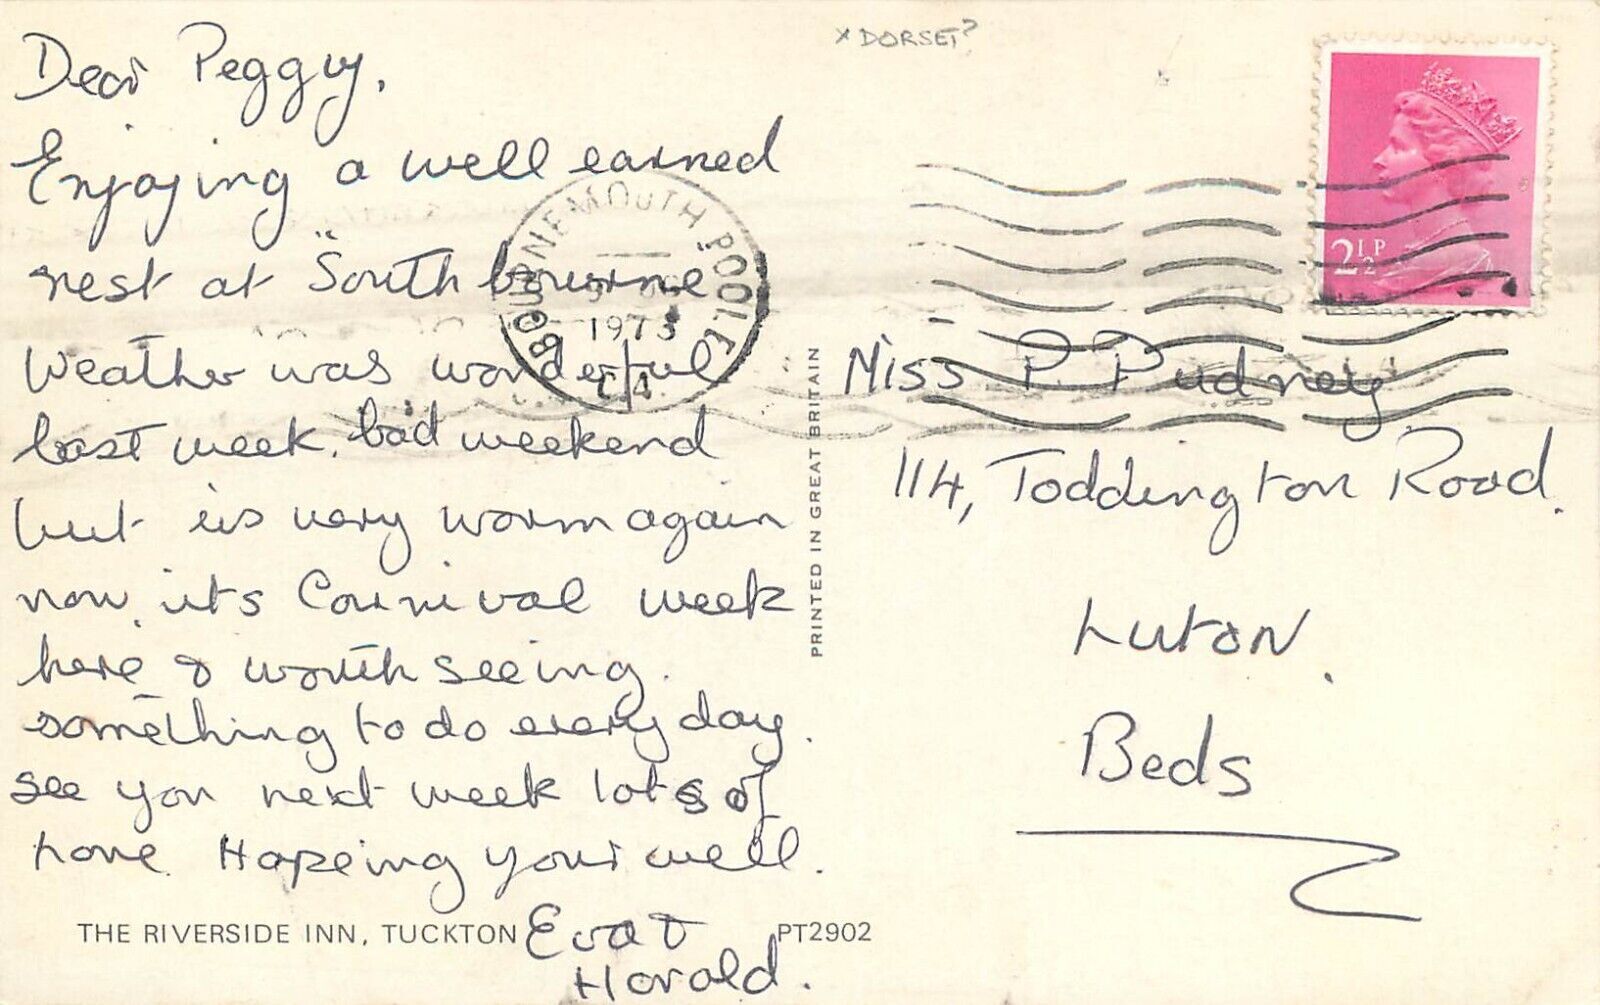 Dear Peggy,
Enjoying a well earned
rest at "Southbourne"
Weather was wonderful
last week, bad weekend
but is very warm again
now, its Carnival week
here & worth seeing.
something to do every day.
see you next week lots of
love Hopeing your well.
Eva &
Harold.
THE RIVERSIDE INN, TUCKTON
PT2902
PRINTED IN GREAT BRITAIN
x DORSET?
BOURNEMOUTH POOLE
1973
2½P
Miss P. Pudney
114, Toddington Road.
Luton.
Beds